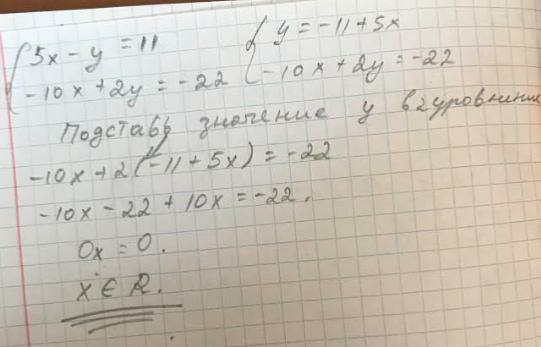 { 5x - y = 11 { y = -11 + 5x
-10x + 2y = -22 -10x + 2y = -22
Подставь значение y в 2 уровнении
-10x + 2(-11 + 5x) = -22
-10x - 22 + 10x = -22.
0x = 0.
x ∈ R.